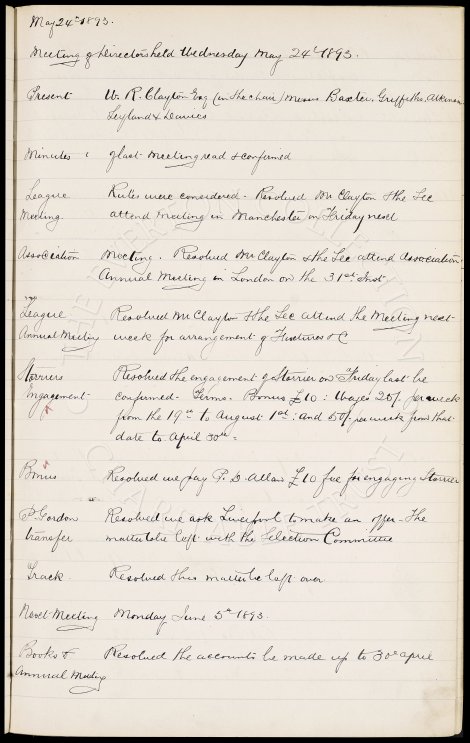 May 24th 1893.
Meeting of Directors held Wednesday May 24th 1893.
Present W. R. Clayton Esq (in the chair) Messrs Baxter, Griffiths, Atkinson
Leyland & Davies
Minutes of last meeting read & confirmed
League Rules were considered. Resolved Mr Clayton & the Sec
Meeting. attend meeting in Manchester on Friday next
Association Meeting. Resolved Mr Clayton & the Sec attend Association
Annual Meeting in London on the 31st Inst
League Resolved Mr Clayton & the Sec attend the Meeting next
Annual Meeting week for arrangement of Fixtures &c
Storriers Resolved the engagement of Storrier on Friday last be
Engagement confirmed. Terms. Bonus £10: Wages 20/- per week
from the 19th to August 1st: and 50/- per week from that
date to April 30th.
Bonus Resolved we pay P. D. Allan £10 fee for engaging Storrier
P. Gordon Resolved we ask Liverpool to make an offer - The
transfer matter to be left with the Selection Committee
Track. Resolved this matter be left over
Next Meeting Monday June 5th 1893.
Books & Resolved the accounts be made up to 30th april
Annual Meeting